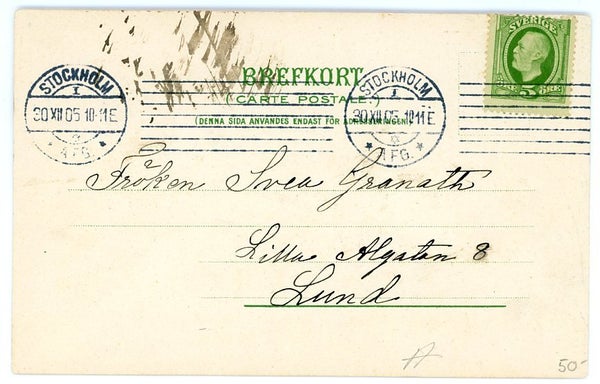 SVERIGE
FEM 5 ÖRE
BREFKORT
(CARTE POSTALE.)
(DENNA SIDA ANVÄNDES ENDAST FÖR ADRESSKRIFVNINGEN.)
STOCKHOLM
1
30 XII 05 10-11 E
AFG.
STOCKHOLM
1
30 XII 05 10-11 E
AFG.
Fröken Svea Granath
Lilla Algatan 8
Lund
50-